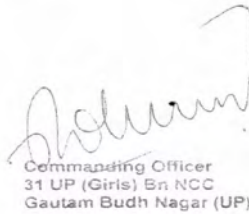 Commanding Officer
31 UP (Girls) Bn NCC
Gautam Budh Nagar (UP)